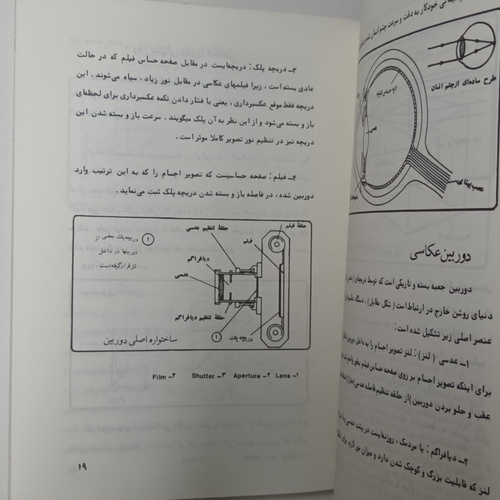 ۳ــ دریچه پلک : دریچه‌ایست در مقابل صفحه حساس فیلم که در حالت
عادی بسته است ، زیرا فیلمهای عکاسی در مقابل نور زیاد ، سیاه می‌شوند . این
دریچه فقط موقع عکسبرداری ، یعنی با فشار دادن تکمه عکسبرداری برای لحظه‌ای
باز و بسته می‌شود و از این نظر به آن پلک میگویند . سرعت باز و بسته شدن این
دریچه نیز در تنظیم نور تصویر کاملا موثر است .
۴ــ فیلم : صفحه حساسیست که تصویر اجسام را که به این ترتیب وارد
دوربین شده ، در فاصله باز و بسته شدن دریچه پلک ثبت می‌نماید .
حلقهٔ فیلم
فیلم
حلقهٔ تنظیم عدسی
دیافراگم
عدسی
حلقهٔ تنظیم دیافراگم
دریچه پلک
دریچه پلک بعضی از
دوربینها در داخل
لنز قرار گرفته است .
ساختواره اصلی دوربین
۱ــ Lens ۲ــ Aperture ۳ــ Shutter ۴ــ Film
۱۹
خودکار به دقت و سرعت چشم انسان
طرح ساده‌ای از چشم انسان
عصب بینائی
دوربین عکاسی
دوربین جعبه بسته و تاریکی است که توسط دریچه‌ای
دنیای روشن خارج در ارتباط است ( شکل مقابل ) ، دستگاه
عنصر اصلی زیر تشکیل شده است :
۱ــ عدسی ( لنز ) : لنز تصویر اجسام را به داخل دوربین
برای اینکه تصویر اجسام بر روی صفحه حساس فیلم بطور
عقب و جلو بردن دوربین از حلقه تنظیم فاصله عدسی
۲ــ دیافراگم : یا مردمک ، روزنه‌ایست در پشت عدسی
لنز که قابلیت بزرگ و کوچک شدن دارد و میزان نور لازم برای